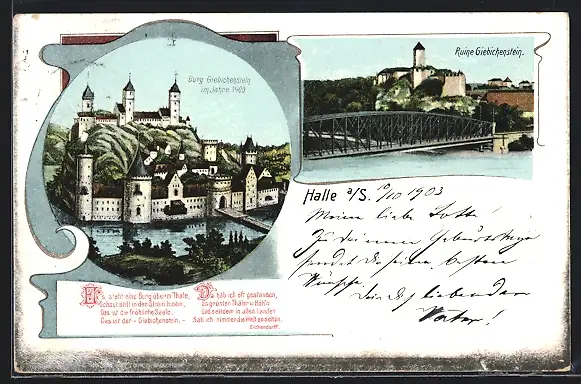 Burg Giebichenstein
im Jahre 1400
Ruine Giebichenstein.
Halle a/S. 10/10 1903
Meine liebe Lotte!
Zu deinem Geburtstage
sendet dir seine besten
Wünsche
Dein dich liebender
Vater!
Es steht eine Burg überm Thale,
Schaut in den Strom hinein,
Das ist die fröhliche Saale,
Das ist der - Giebichenstein. -
Da hab ich oft gestanden,
Es grünten Thäler u. Höh'n
Und seitdem in allen Landen
Sah ich nimmer die Welt so schön.
Eichendorff.